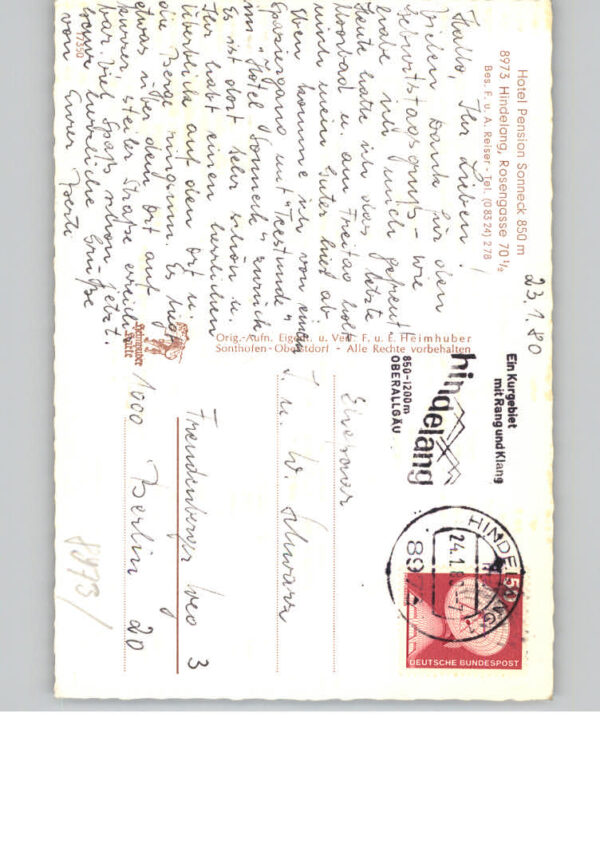 Hotel Pension Sonneck 850 m
8973 Hindelang, Rosengasse 70 1/2
Bes. F. u. A. Reiser - Tel. (0 83 24) 2 78
23.1.80
Hallo, Ihr Lieben!
Vielen Dank für den
Geburtstagsgruß - wie
habe ich mich gefreut!
Heute hatte ich das letzte
Moorbad u. am Freitag holt
mich mein Guter hier ab.
Eben komme ich von einem
Spaziergang mit "Teestunde"
im "Hotel Sonneck" zurück.
Es ist dort sehr schön u.
Ihr habt einen herrlichen
Überblick auf den Ort u.
die Berge ringsum. Es liegt
etwas über dem Ort auf
kurzer, steiler Straße erreich-
bar. Viel Spaß schon jetzt.
Ganz herzliche Grüße
von Eurer
17350
Orig.-Aufn. Eigen. u. Verl. F. u. E. Heimhuber
Sonthofen - Oberstdorf - Alle Rechte vorbehalten
Ein Kurgebiet
mit Rang und Klang
hindelang
850-1200m
OBERALLGÄU
HINDELANG
24.1.80
8973
50
DEUTSCHE BUNDESPOST
Ehepaar
J. u. W. Schwarz
Freudenberger Weg 3
1000 Berlin 20
8973/